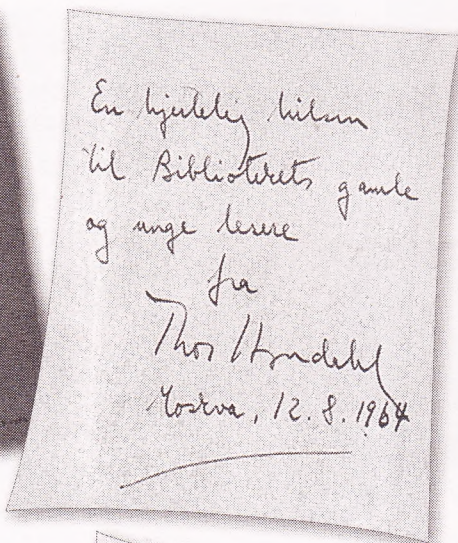 En hjertelig hilsen
til Bibliotekets gamle
og unge lesere
fra
Thor Heyerdahl
Moskva, 12.8.1964